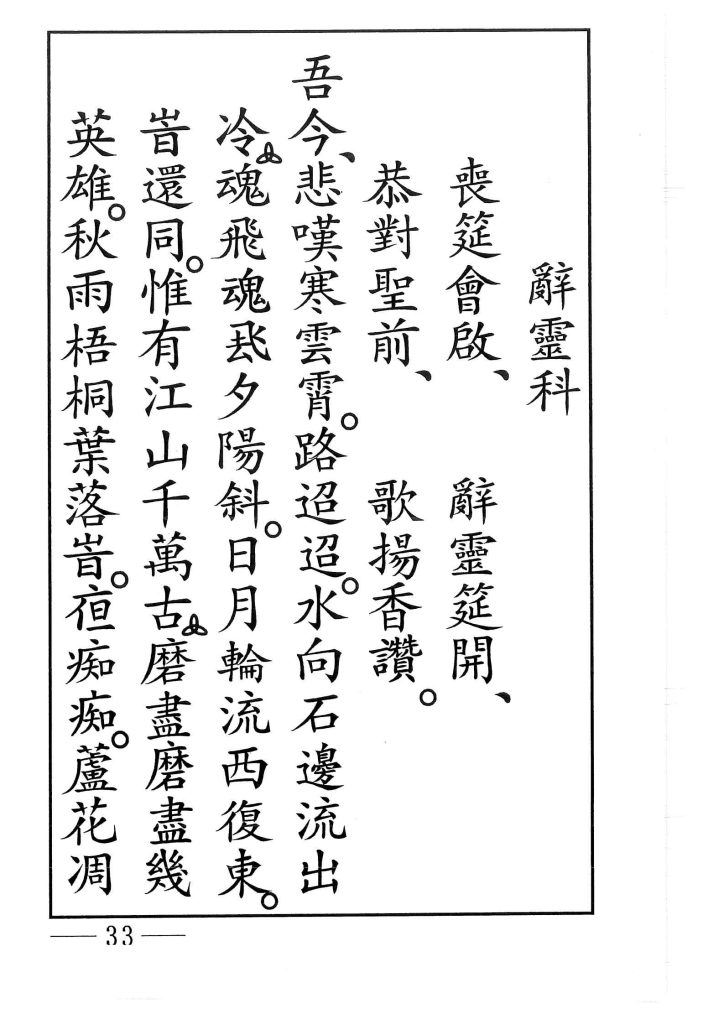 辭靈科
喪筵會啟、 辭靈筵開、
恭對聖前、 歌揚香讚。
吾今、悲嘆寒雲霄。路迢迢。水向石邊流出
冷魂飛魂飛夕陽斜。日月輪流西復東。
旹還同。惟有江山千萬古磨盡磨盡幾
英雄。秋雨梧桐葉落旹。痴痴。蘆花凋
33